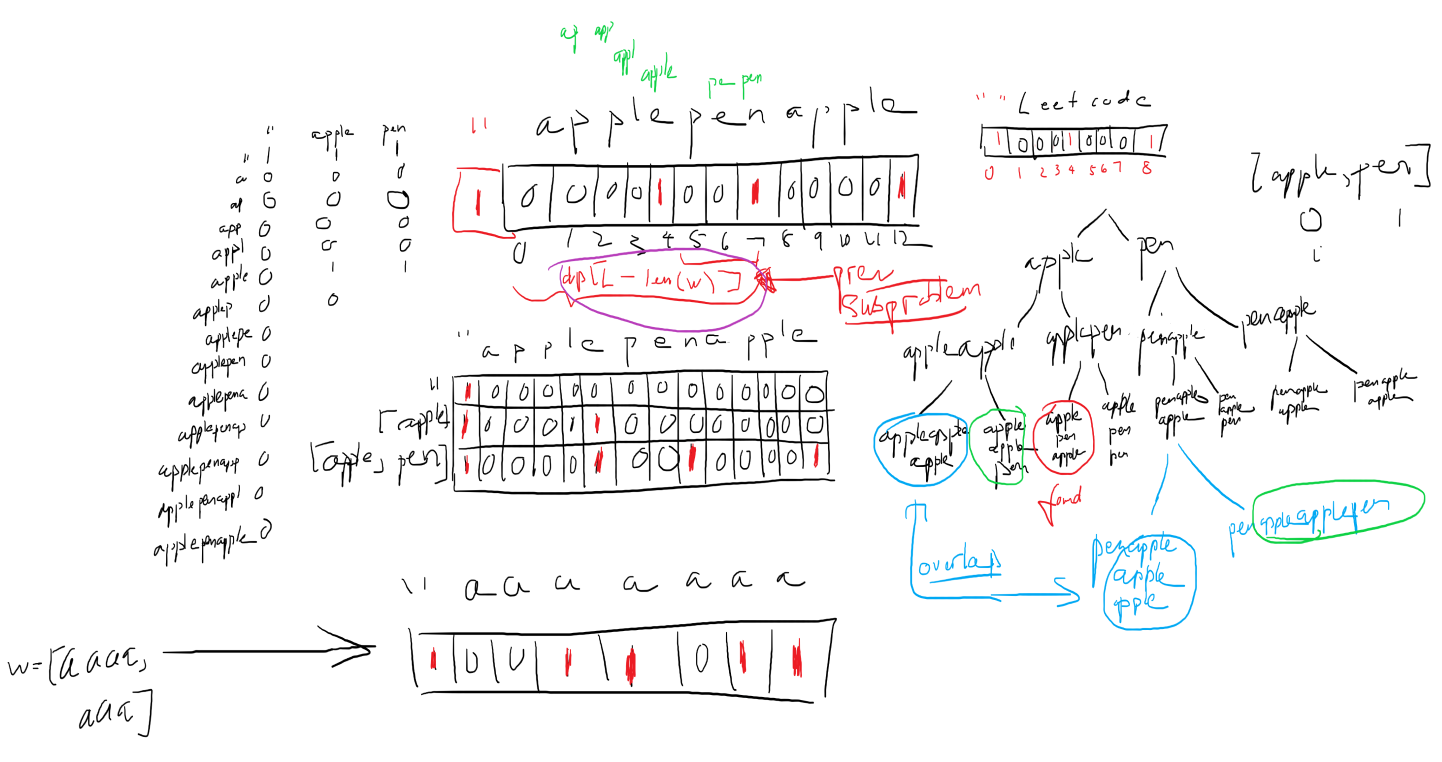 ap app
appl
apple
pe pen
" apple pen
" 1 1 1
a 0 0 0
ap 0 0 0
app 0 0 0
appl 0 0 0
apple 0 1 1
applep 0 0
applepe 0
applepen 0
applepena 0
applepenap 0
applepenapp 0
applepenappl 0
applepenapple 0
" a p p l e p e n a p p l e
1 0 0 0 0 1 0 0 1 0 0 0 0 1
0 1 2 3 4 5 6 7 8 9 10 11 12
dp[L - len(w)]
prev
subproblem
" a p p l e p e n a p p l e
"
[apple]
[apple, pen]
" a a a a a a a
w=[aaaa,
aaa]
1 0 0 1 1 0 1 1
" " Leet code
1 0 0 0 1 0 0 0 1
0 1 2 3 4 5 6 7 8
[apple, pen]
0 1
apple pen
appleapple applepen penapple penapple
appleapple
apple
apple
apple
pen
apple
pen
apple
apple
pen
pen
penapple
apple
pen
apple
pen
penapple
apple
penapple
apple
found
overlaps
penapple
apple
apple
penappleapplepen